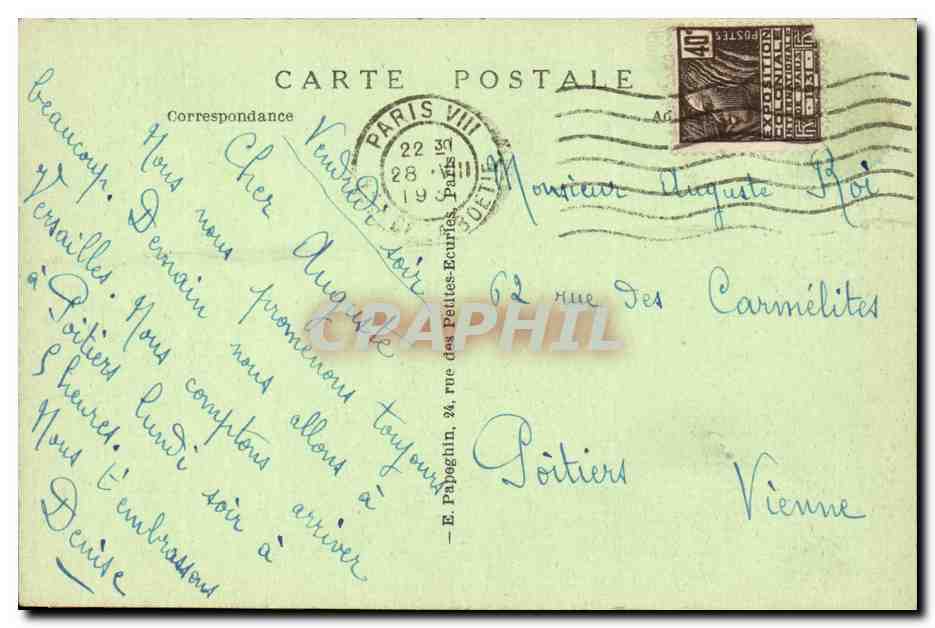 CARTE POSTALE
Correspondance
PARIS VIII
22 30
28 VIII
193
BOETIE
40c
POSTES
EXPOSITION
COLONIALE
INTERNATIONALE
DE PARIS
1931
Vendredi soir
Cher Auguste
Nous nous promenons toujours
beaucoup. Demain nous allons à
Versailles. Nous comptons arriver
à Poitiers lundi soir à
5 heures.
Nous t'embrassons
Denise
E. Papoghin, 24, rue des Petites-Ecuries, Paris
Monsieur Auguste Roi
62 rue des Carmélites
Poitiers
Vienne
CPAPHIL